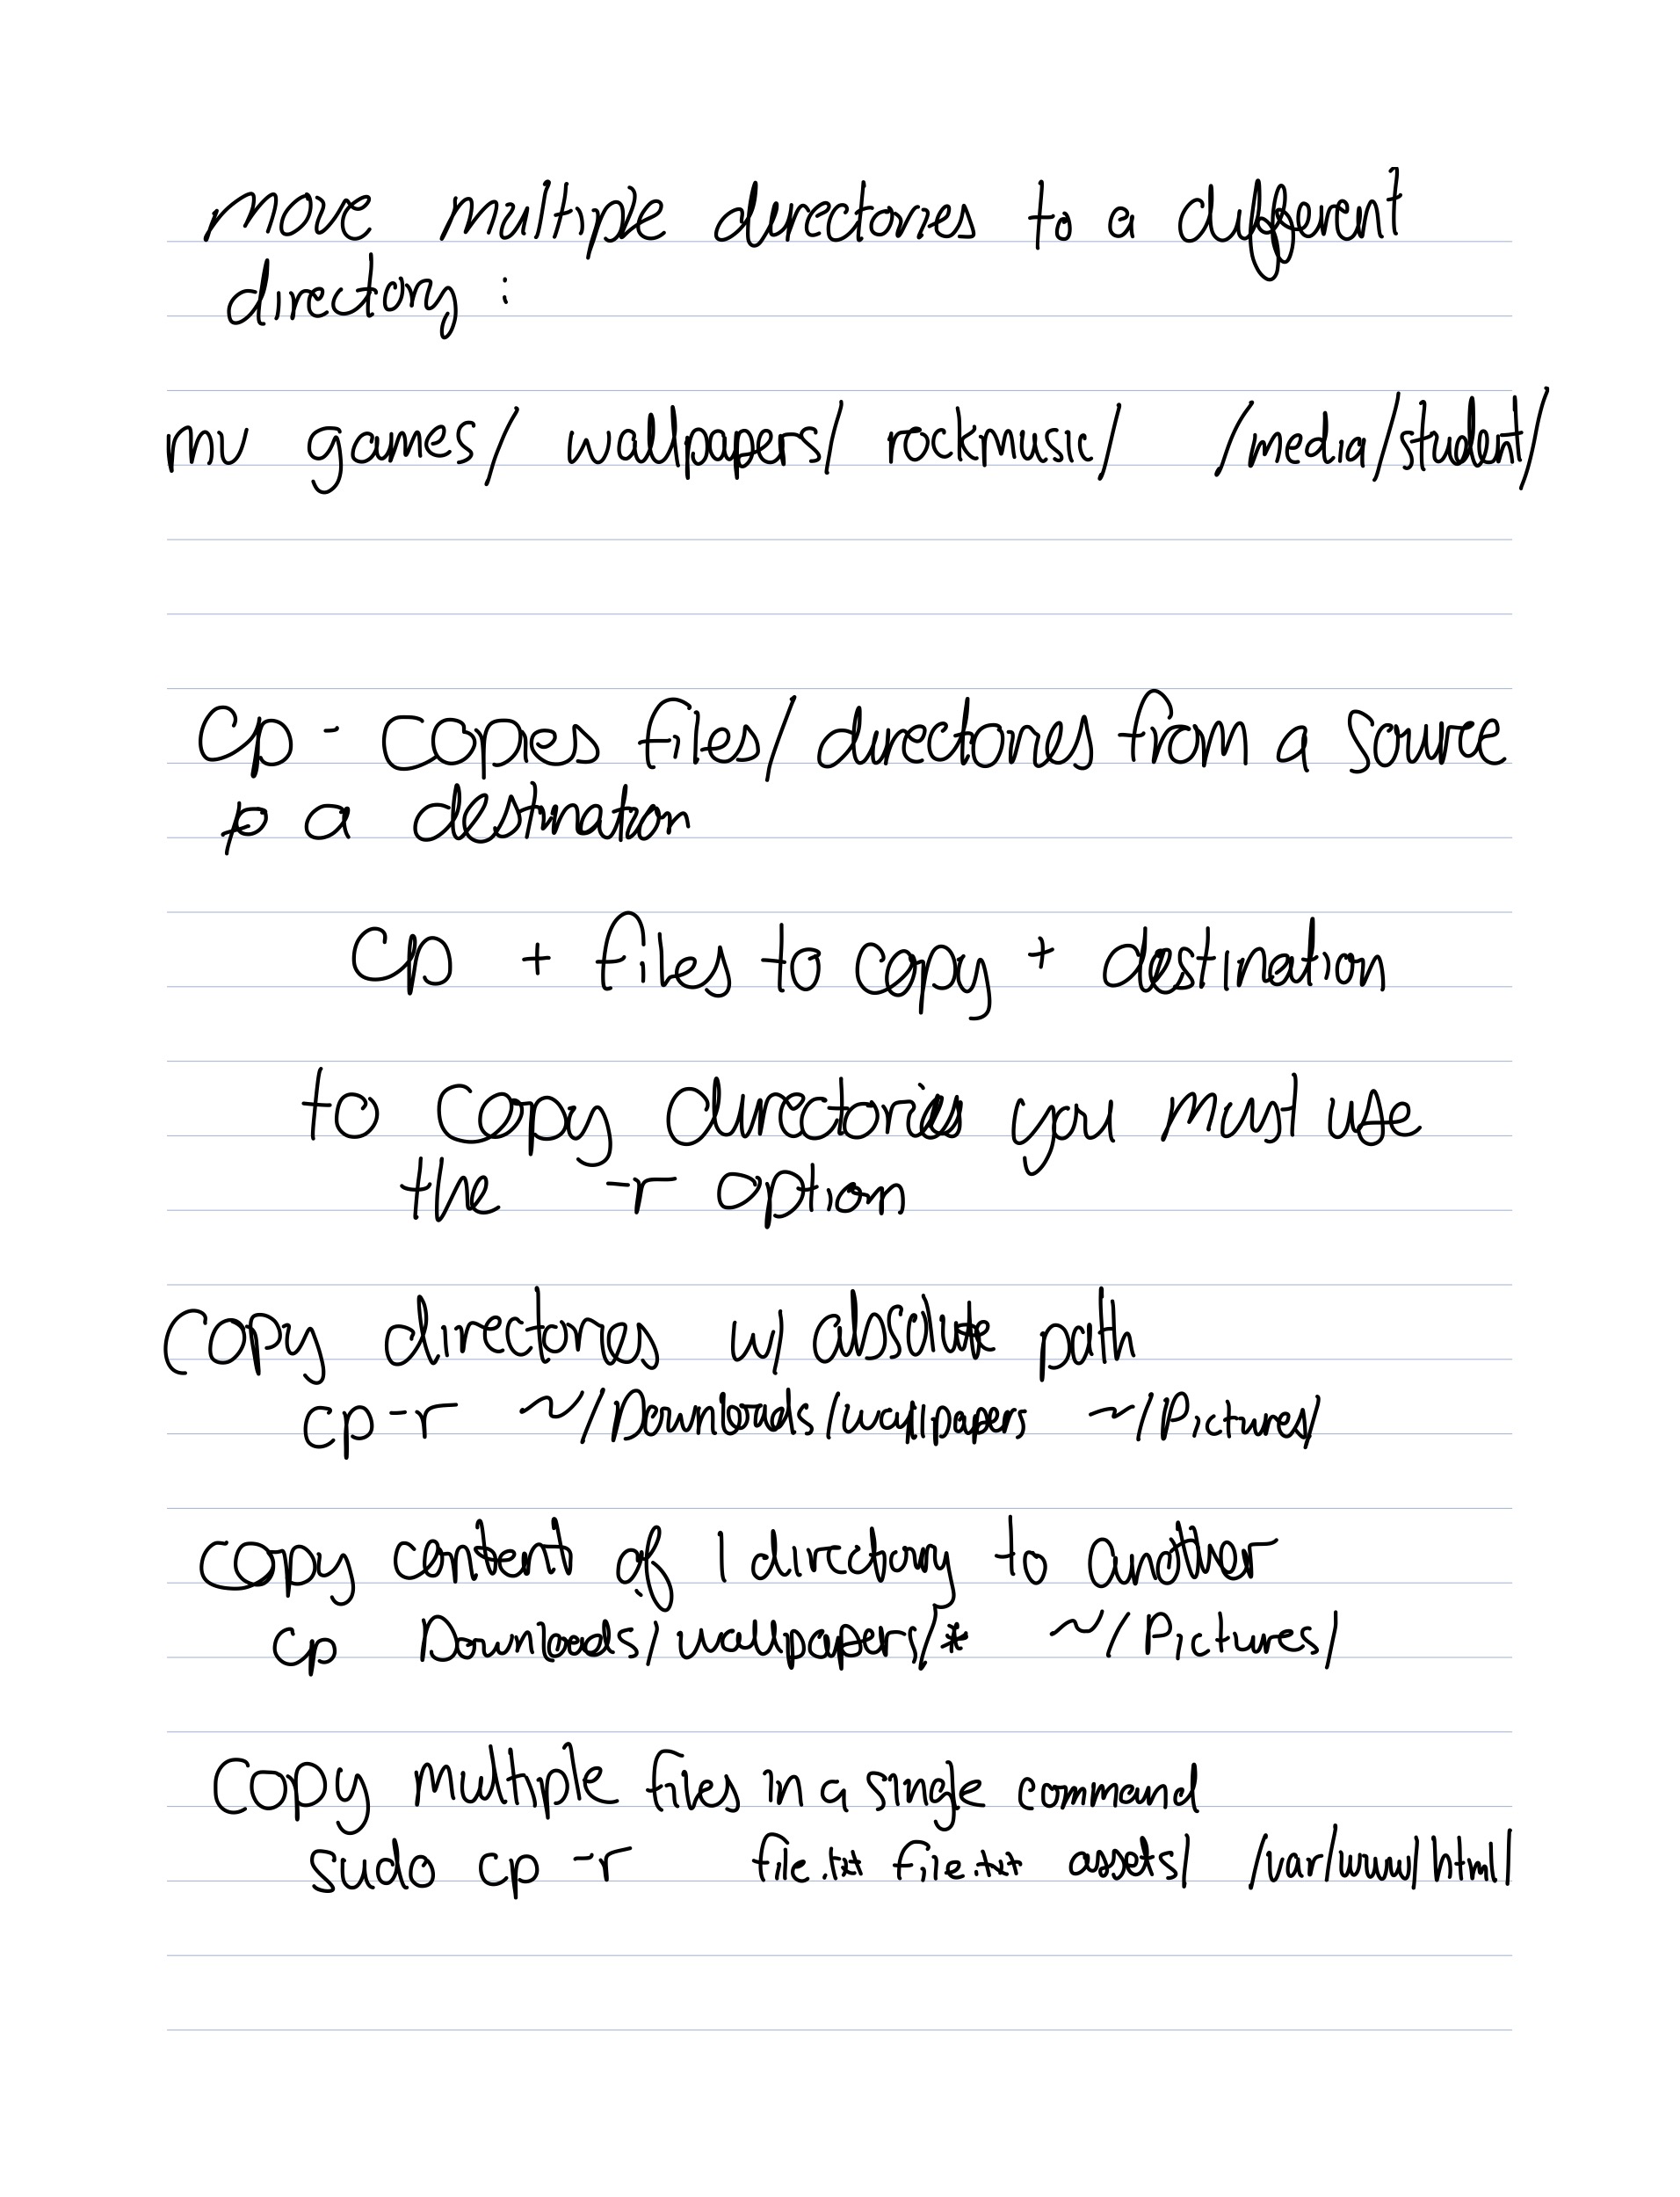 move multiple directories to a different
directory :
mv games/ wallpapers/ rockmusic/ /media/student/
cp - copies files/directories from a source
to a destination
cp + files to copy + destination
to copy directories you must use
the -r option
copy directory w/ absolute path
cp -r ~/Downloads/wallpapers ~/Pictures/
copy content of 1 directory to another
cp Downloads/wallpapers/* ~/Pictures/
copy multiple files in a single command
sudo cp -r assets/ /var/www/html/